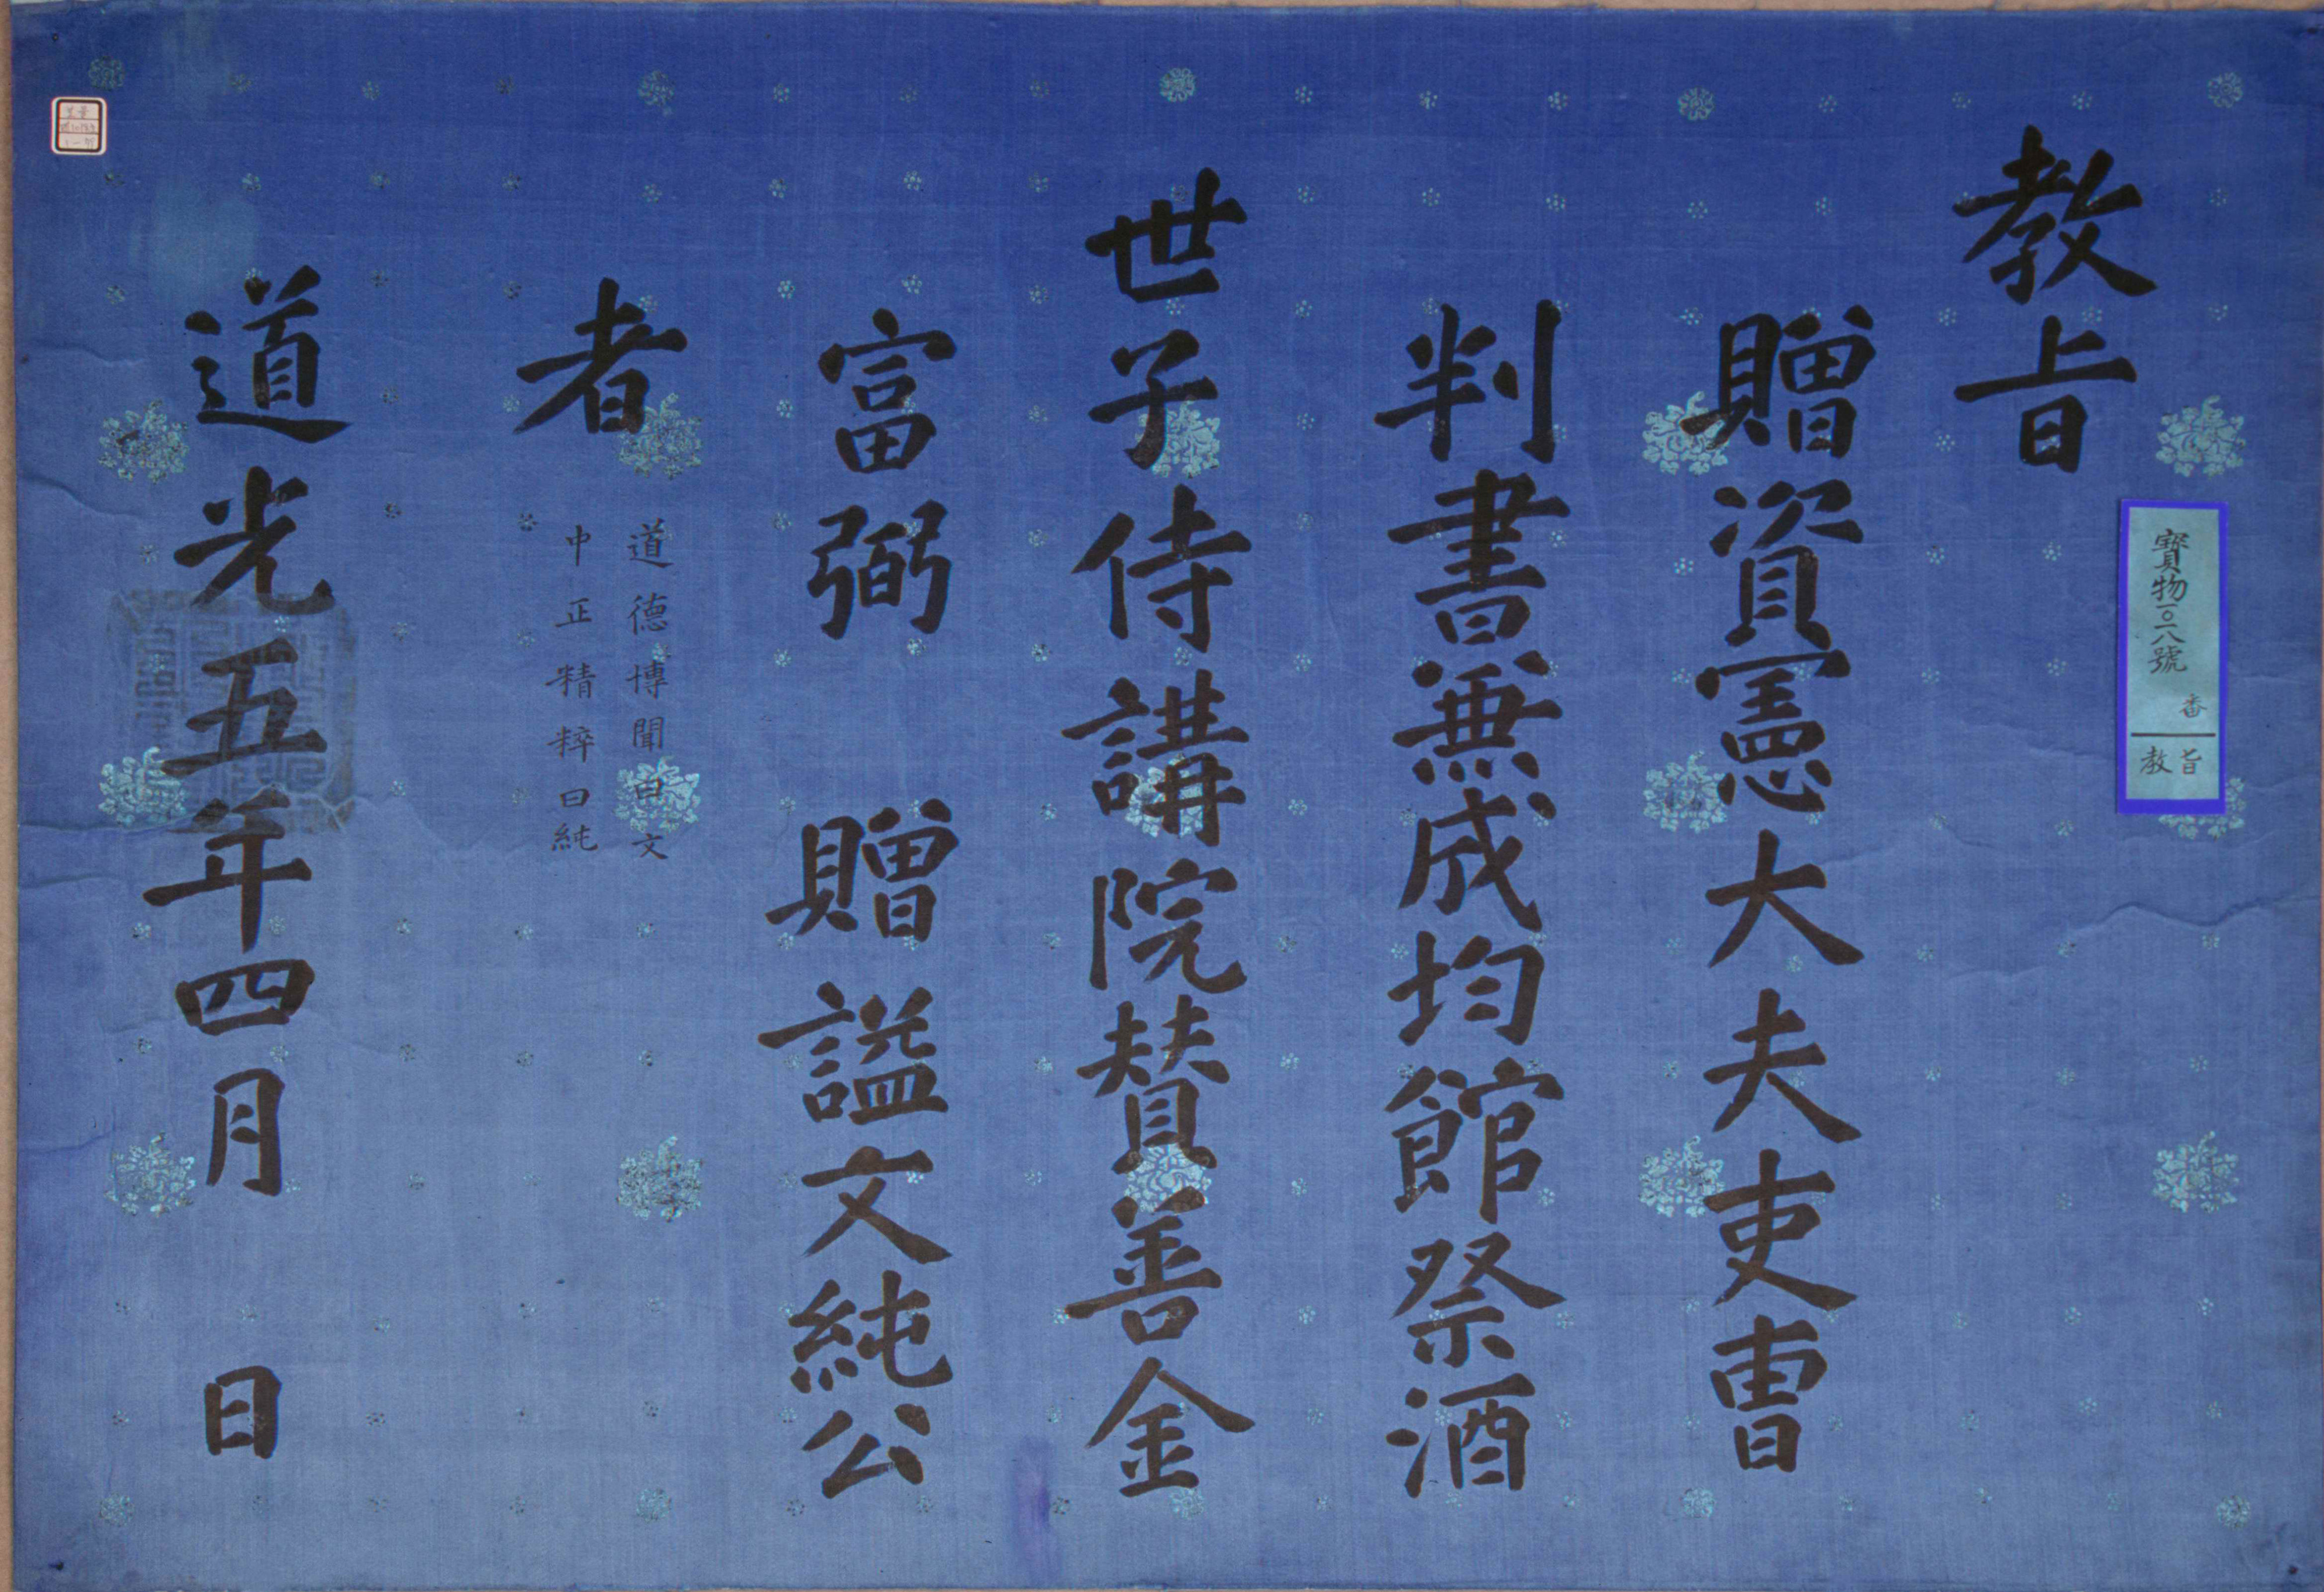 寶物一〇一八號
番
教旨
教旨
贈資憲大夫吏曺
判書兼成均館祭酒
世子侍講院賛善金
富弼 贈謚文純公
者
道德博聞曰文
中正精粹曰純
道光五年四月 日